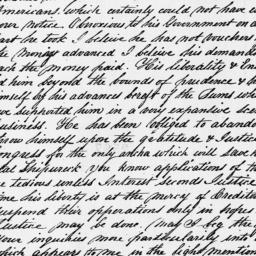 Americans! which certainly could not have
your notice. Obnoxious to his Government on
part he took I beleive he has not vouchers
the money advanced I beleive his demands
each the money paid. His liberality &
him beyond the bounds of prudence &
himself by his advanced draft of the Sums
supported him in a very expensive
business. He has been obliged to abandon
throw himself upon the gratitude & Justice
Congress for the only anchor which will save
Shipwreck you know applications of
tedious unless Interest Seconds Justice
me his liberty is at the mercy of Creditors
suspend their opperations only in hopes
Justice may be done. May I beg the
your inquiries more particularily into
which appears to me in the light